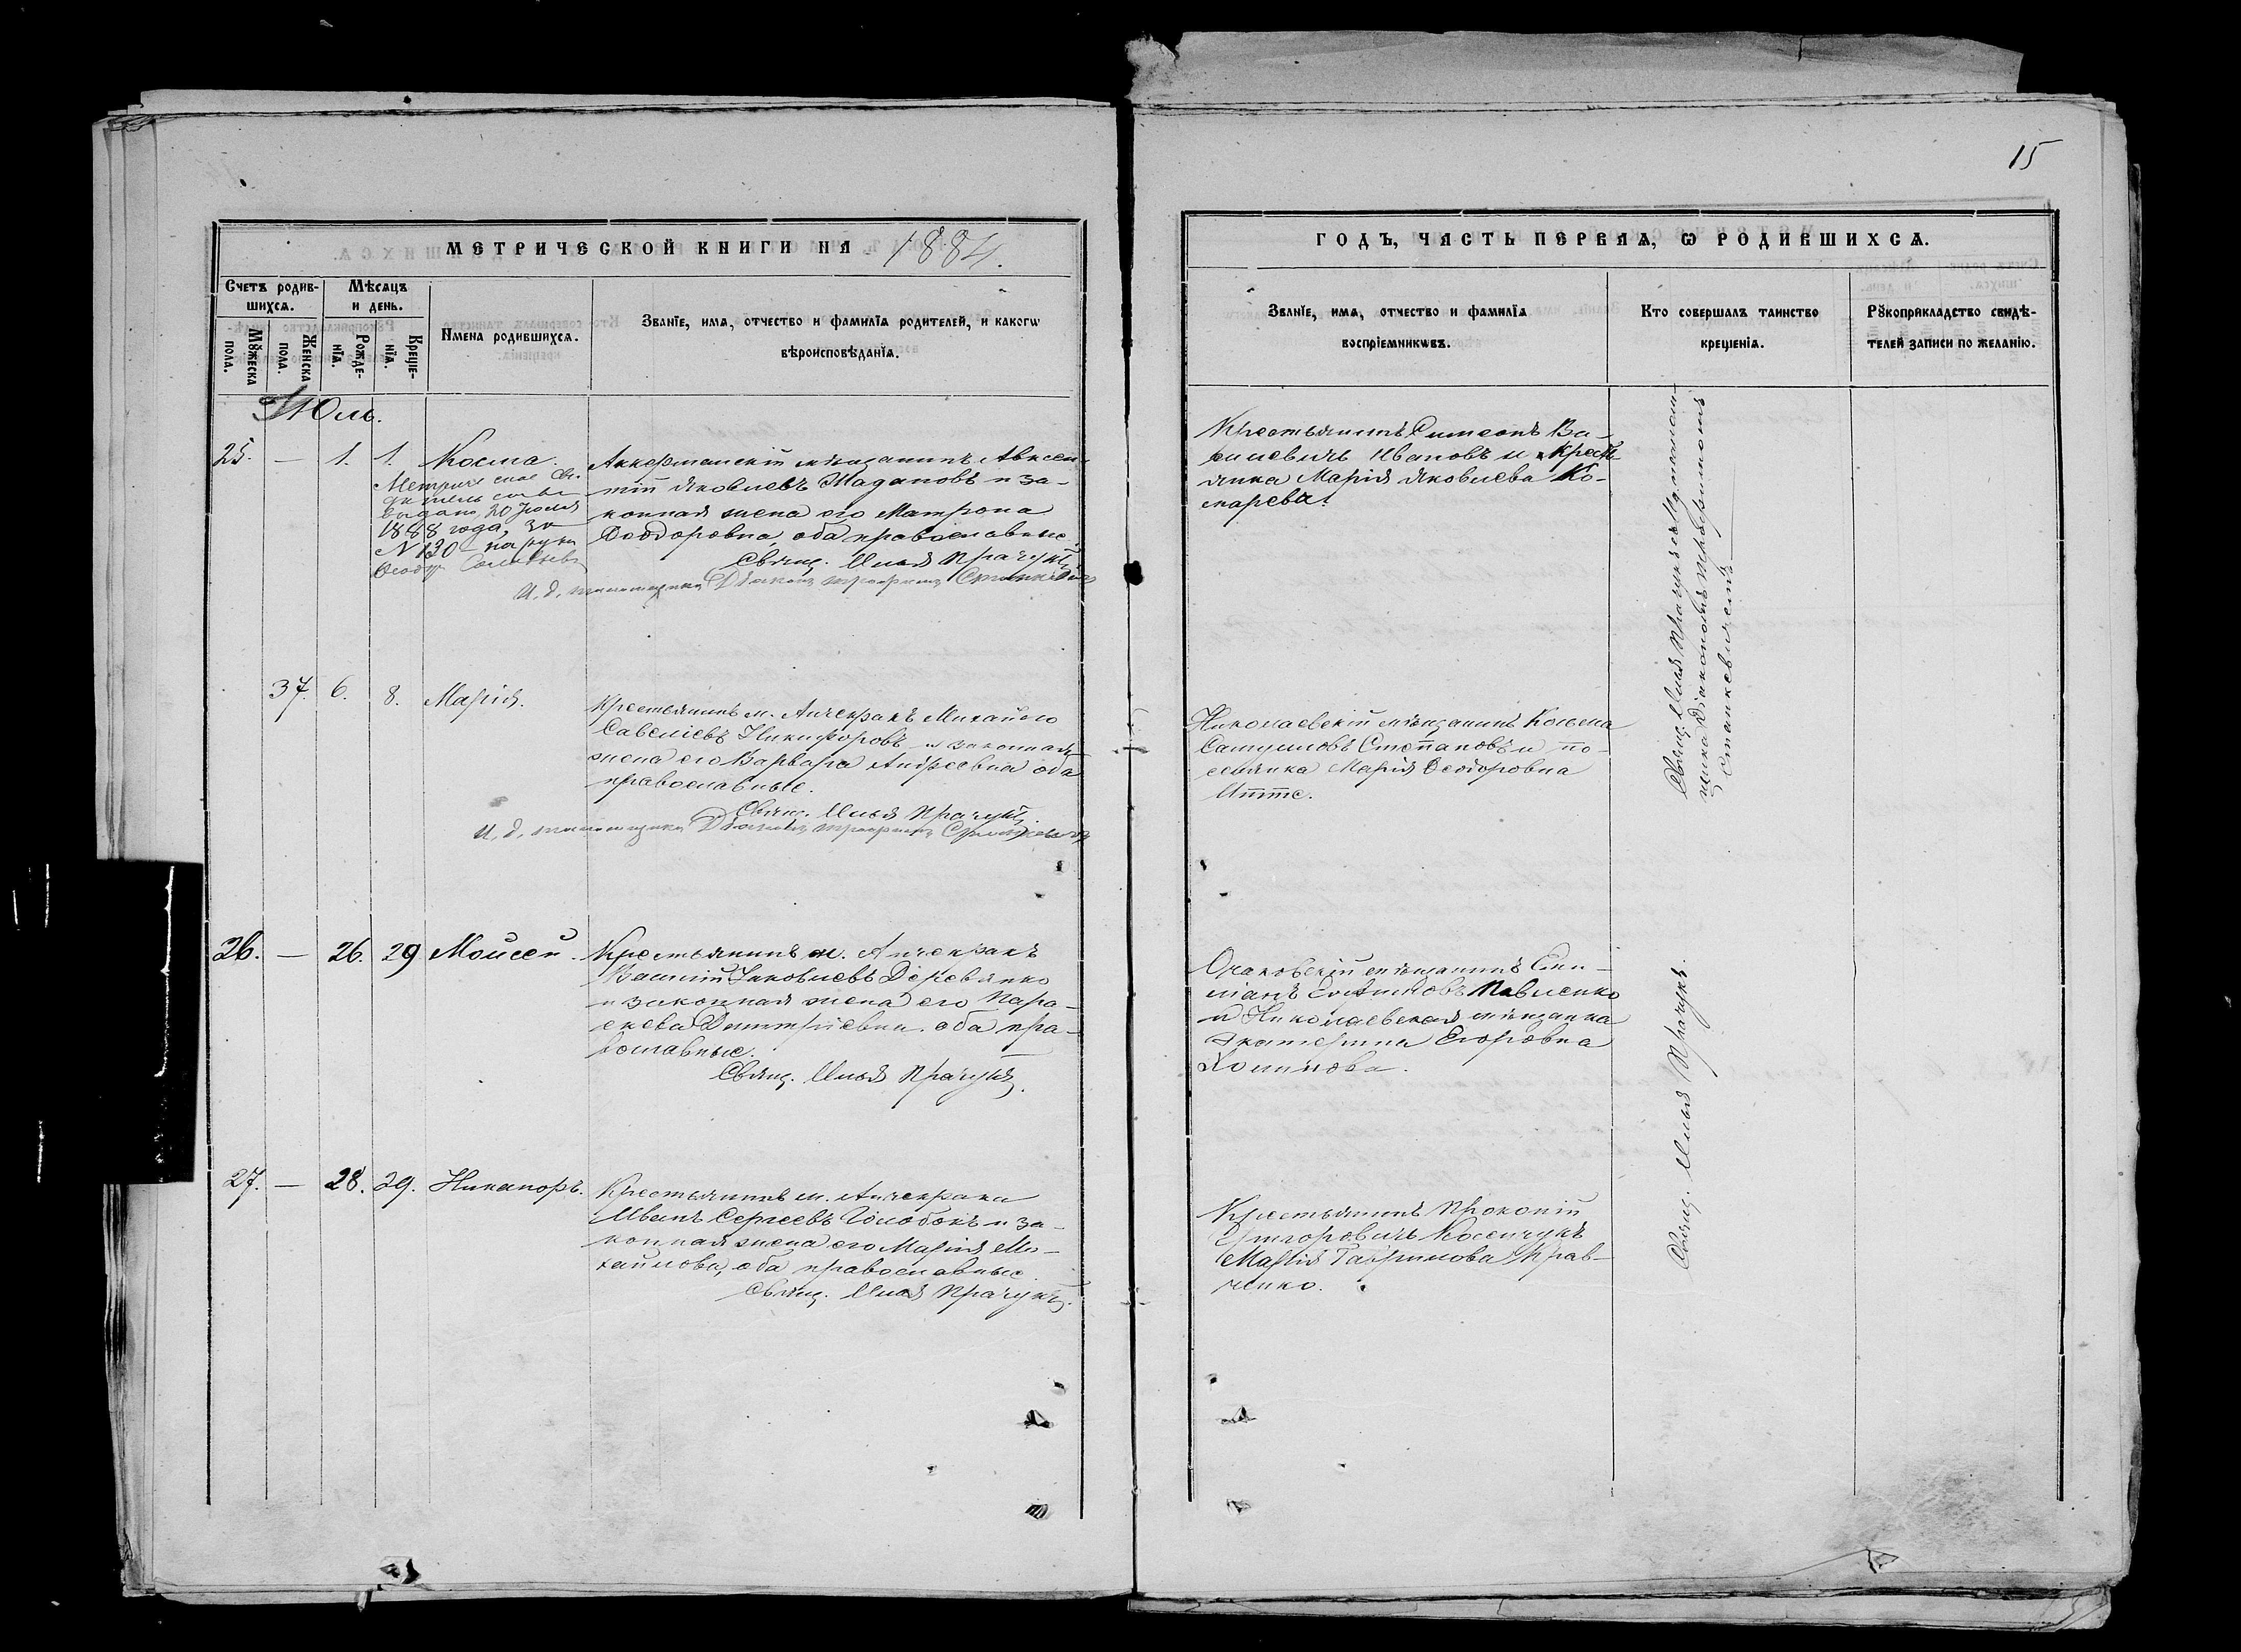 15
МЕТРИЧЕСКОЙ КНИГИ НА 1884.
Счетъ родившихся.
Мѣсяцъ и день.
Мꙋжеска пола.
Женска пола.
Рожденїя.
Крещенїя.
Имена родившихся.
Званїе, имя, отчество и фамилїя родителей, и какогѡ
вѣроисповѣданїя.
Июль.
25. — 1. 1. Косма.
Метрическое Сви-
дѣтельство
выдано 20 Июля
1888 года, за
N 130 на руки
Аккерманскій мѣщанинъ Авксен-
тій Яковлевъ Жадановъ и за-
конная жена его Матрона
Ѳеодоровна, оба православные.
Свящ. Илья Прачукъ
И. д. псаломщика Діаконъ Трофимъ Станкевичъ
37. 6. 8. Марія.
Крестьянинъ м. Анчекракъ Михаилъ
Савеліевъ Никифоровъ и законная
жена его Варвара Андреевна оба
православные.
Свящ. Илья Прачукъ.
И. д. псаломщика Діаконъ Трофимъ Станкевичъ
26. — 26. 29 Моисей.
Крестьянинъ м. Анчекракъ
Василій Яковлевъ Деревянко
и законная жена его Пара-
скева Димитріевна оба пра-
вославные.
Свящ. Илья Прачукъ.
27. — 28. 29. Никаноръ.
Крестьянинъ м. Анчекрака
Иванъ Сергеевъ Голобокъ и за-
конная жена его Марія Ми-
хаилова, оба православные.
Свящ. Илья Прачукъ.
ГОДЪ, ЧАСТЬ ПЕРВАЯ, Ѡ РОДИВШИХСЯ.
Званїе, имя, отчество и фамилїя
воспрїемникѡвъ.
Кто совершалъ таинство
крещенїя.
Рꙋкоприкладство свидѣ-
телей записи по желанїю.
Крестьянинъ Симеонъ Ва-
силевичъ Ивановъ и крест
янка Марія Яковлева Ко-
марева.
Свящ. Илья Прачукъ съ И. д. псалом-
щика Діакономъ Трофимомъ
Станкевичемъ
Николаевскій мѣщанинъ Козьма
Самуиловъ Степановъ и по-
селянка Марія Ѳеодоровна
Очаковскій мѣщанинъ Еми-
ліанъ Павленко
и Николаевская мѣщанка
Екатерина Егоровна
Свящ. Илья Прачукъ.
Крестьянинъ Прокопій
Григоровичъ
Марія Гаврилова Крав-
ченко.